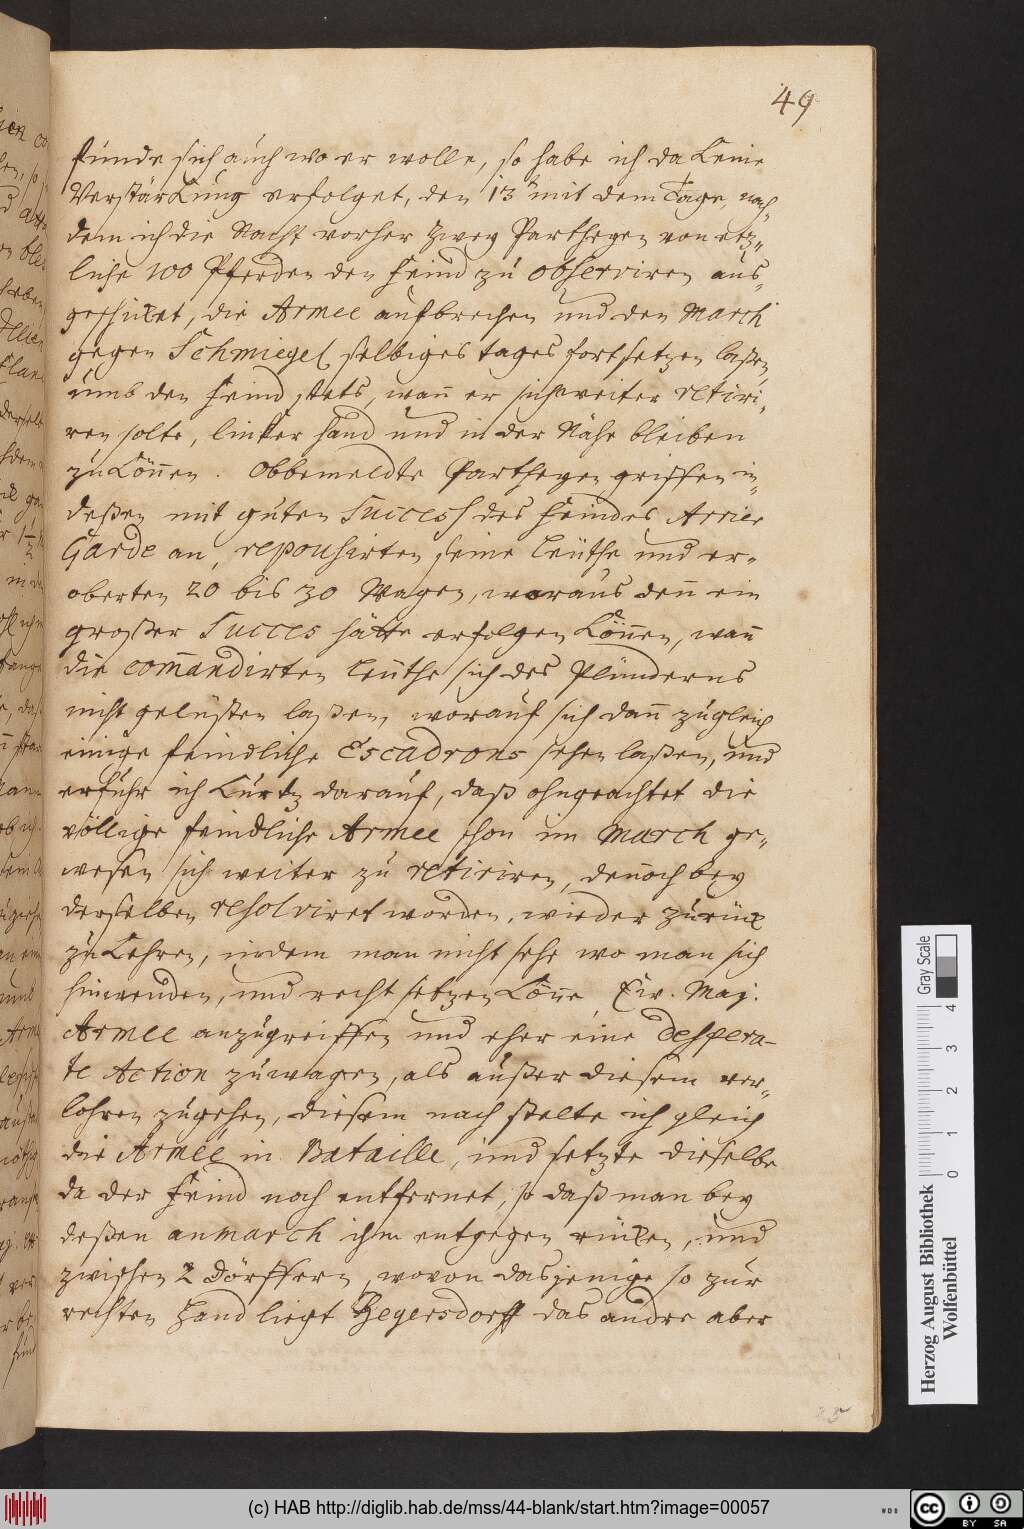 49
fünde sich auch wo er wolle, so habe ich da keine
Verstärkung erfolget, den 13t mit dem Tage, nach-
dem ich die Nacht vorher zwey Partheyen von etz-
liche 100 Pferden den Feind zu observiren aus-
geschicket, die Armee aufbrechen und den March
gegen Schmiegel selbiges tages fortsetzen laßen,
umb den Feind stets, wann er sich weiter retiri-
ren solte, lincker Hand und in der Nähe bleiben
zu können. Obbemeldte Partheyen griffen in-
deßen mit guten Success des Feindes Arrier
Garde an, repousirten seine Leüthe und er-
oberten 20 bis 30 Wagen, woraus den̄ ein
großer Succes hätte erfolgen kön̄en, wan̄
die com̄andirten Leuthe sich des Plünderns
nicht gelüsten laßen, worauf sich dan̄ zugleich
einige feindliche Escadrons sehen laßen, und
erfuhr ich kurtz darauf, daß ohngeachtet die
völlige feindliche Armee schon im March ge-
wesen sich weiter zu retiriren, den̄och bey
derselben resolviret worden, wieder zurück
zu kehren, indem man nicht sehe wo man sich
hinwenden, und recht setzen kön̄e, Ew. Maj.
Armee anzugreiffen und eher eine despera-
te Action zu wagen, als außer diesem ver-
lohren zu gehen, diesem nach stelte ich gleich
die Armee in Bataille, und setzte dieselbe
da der Feind noch entfernet, so daß man bey
deßen anmarch ihm entgegen rücken, und
zwischen 2 Dörffern, wovon dasjenige so zur
rechten Hand liegt Gegersdorff das andre aber
Herzog August Bibliothek
Wolfenbüttel
Gray Scale
0 1 2 3 4
(c) HAB http://diglib.hab.de/mss/44-blank/start.htm?image=00057
WDB
cc BY SA